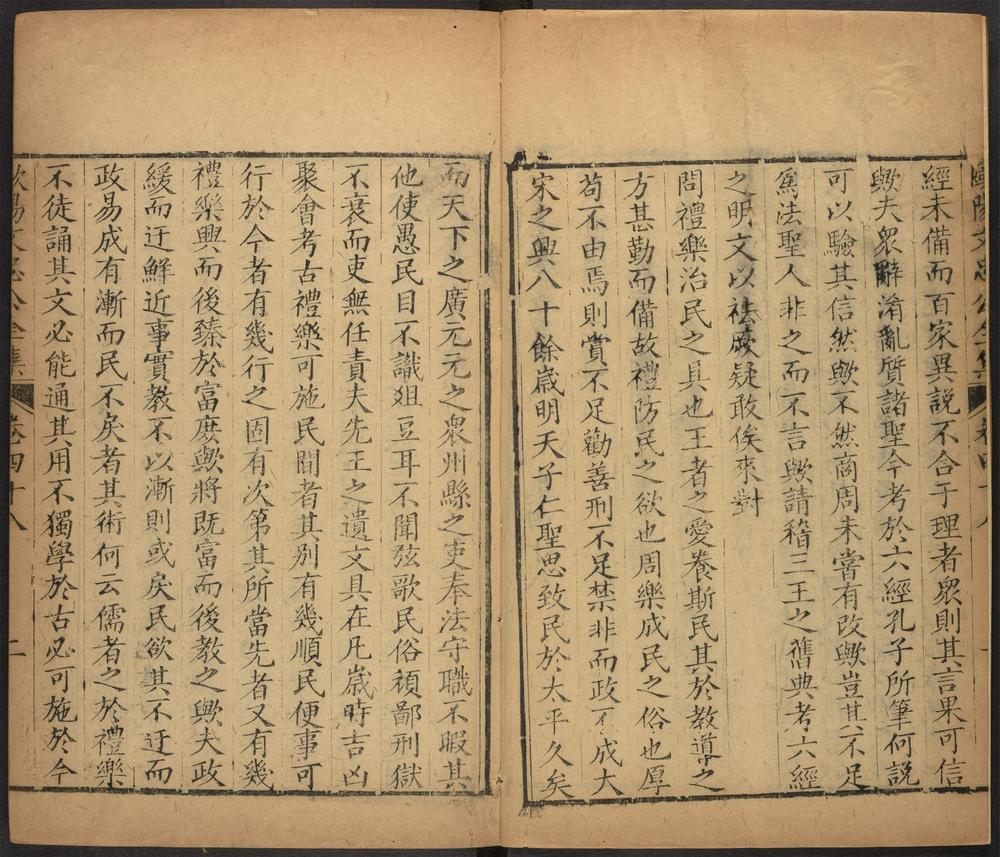 歐陽文忠公全集 卷四十八
經未備而百家異說不合于理者衆則其言果可信
歟夫衆辭淆亂質諸聖今考於六經孔子所筆何說
可以驗其信然歟不然商周未嘗有改歟豈其不足
爲法聖人非之而不言歟請稽三王之舊典考六經
之明文以祛厥疑敢俟來對
問禮樂治民之具也王者之愛養斯民其於教導之
方甚勤而備故禮防民之欲也周樂成民之俗也厚
苟不由焉則賞不足勸善刑不足禁非而政不成大
宋之興八十餘歲明天子仁聖思致民於太平久矣
而天下之廣元元之衆州縣之吏奉法守職不暇其
他使愚民目不識俎豆耳不聞弦歌民俗頑鄙刑獄
不衰而吏無任責夫先王之遺文具在凡歲時吉凶
聚會考古禮樂可施民間者其別有幾順民便事可
行於今者有幾行之固有次第其所當先者又有幾
禮樂興而後臻於富庶歟將既富而後教之歟夫政
緩而迂鮮近事實教不以漸則或戾民欲其不迂而
政易成有漸而民不戾者其術何云儒者之於禮樂
不徒誦其文必能通其用不獨學於古必可施於今
歐陽文忠公全集 卷四十八 二